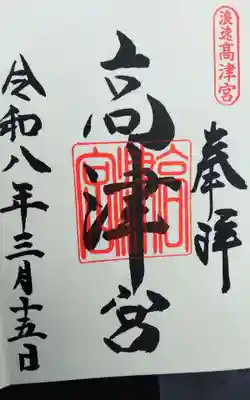 浪速高津宮
奉拝
高津宮
高津宮
令和八年三月十五日